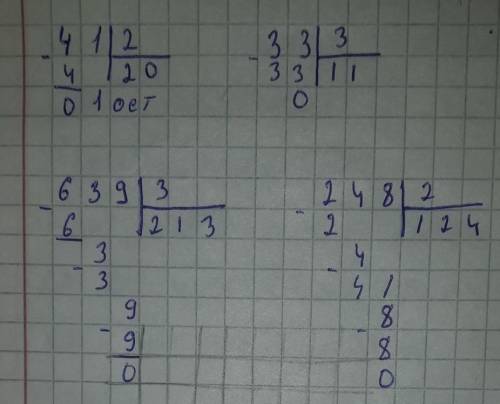 - 4 1 | 2
4 | 2 0
0 1 ост
- 3 3 | 3
3 3 | 1 1
0
- 6 3 9 | 3
6 | 2 1 3
- 3
3
- 9
9
0
- 2 4 8 | 2
2 | 1 2 4
- 4
4 1
- 8
8
0